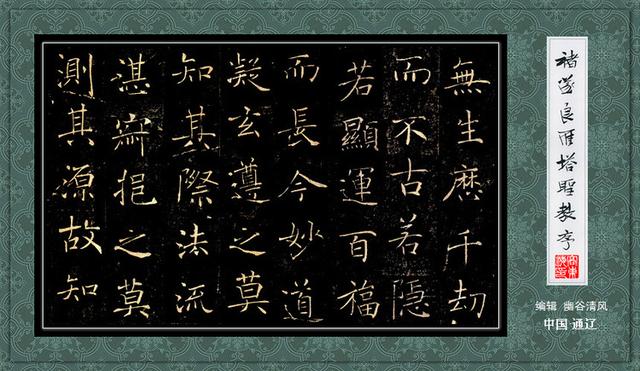 褚遂良雁塔聖教序
編辑 幽谷清风
中国·通辽
無生歷千劫
而不古若隱
若顯運百福
而長今妙道
凝玄遵之莫
知其際法流
湛寂挹之莫
測其源故知